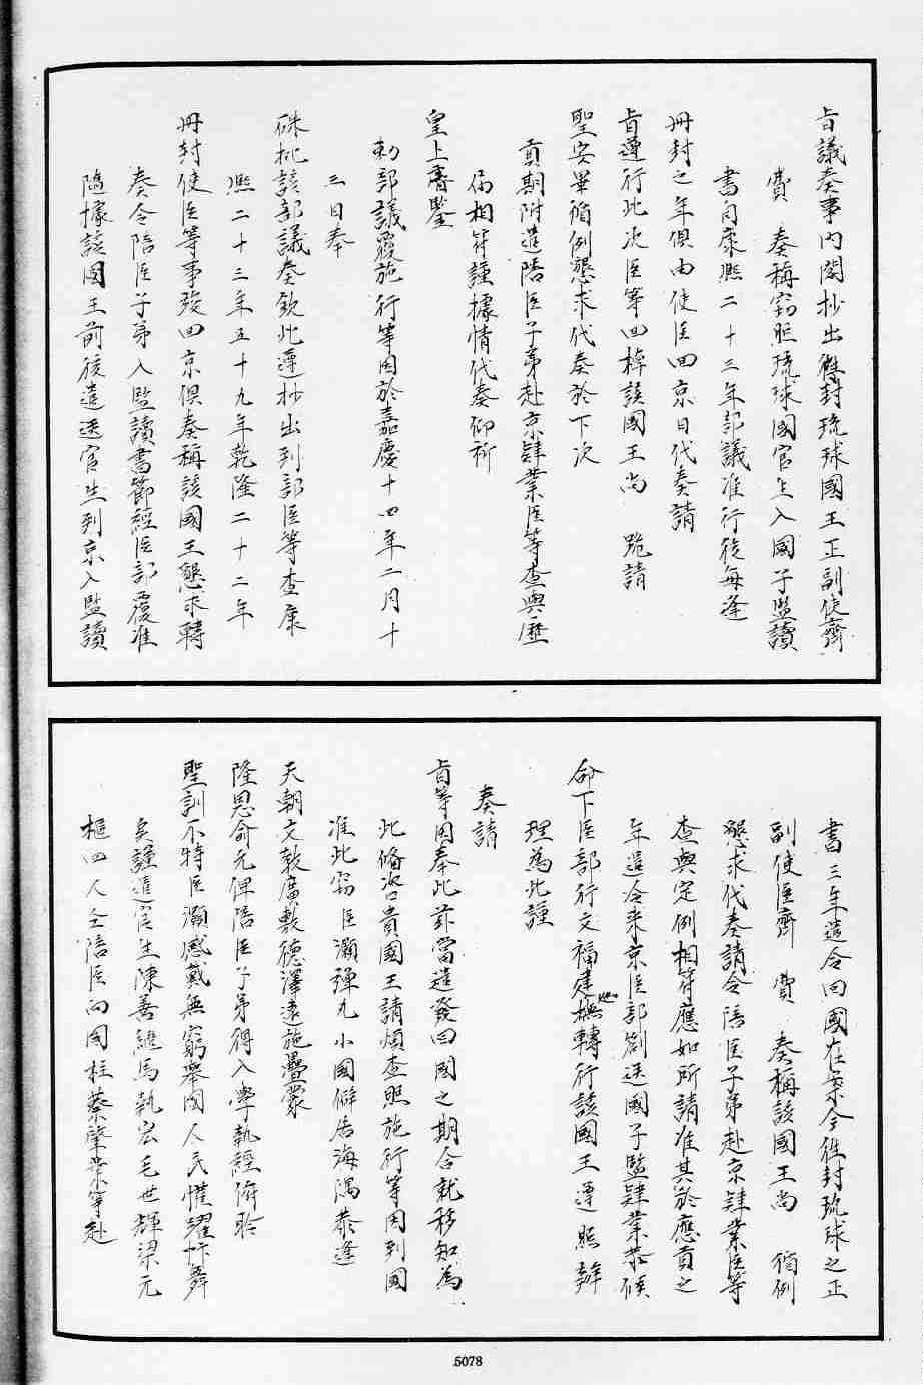 旨議奏事內閣抄出徃封琉球國王正副使齊
費　奏稱窃照琉球國官生入國子監讀
書向康熙二十三年部議准行後每逢
冊封之年俱由使臣回京日代奏請
旨遵行此次臣等回棹該國王尚　跪請
聖安畢循例懇求代奏於下次
貢期附遣陪臣子弟赴京肄業臣等查與歷
屆相符謹據情代奏仰祈
皇上睿鑒
勅部議覆施行等因於嘉慶十四年二月十
三日奉
硃批該部議奏欽此遵抄出到部臣等查康
熙二十三年五十九年乾隆二十二年
冊封使臣等事竣回京俱奏稱該國王懇求轉
奏令陪臣子弟入監讀書節經臣部覆准
隨據該國王前後遣送官生到京入監讀
書三年遣令回國在案今徃封琉球之正
副使臣齊　費　奏稱該國王尚　循例
懇求代奏請令陪臣子弟赴京肄業臣等
查與定例相符應如所請准其於應貢之
年遣令来京臣部劄送國子監肄業恭候
命下臣部行文福建巡撫轉行該國王遵照辦
理為此謹
奏請
旨等因奉此茲當遣發回國之期合就移知為
此備咨貴國王請煩查照施行等因到國
准此窃臣灝彈丸小國僻居海隅恭逢
天朝文敎廣敷德澤遠施疊蒙
隆恩俞允俾陪臣子弟得入學執經俯聆
聖訓不特臣灝感戴無窮舉國人民懽躍忭舞
矣謹遣官生陳善繼馬執宏毛世輝梁元
樞四人全陪臣向國柱蔡肇業等赴
5078